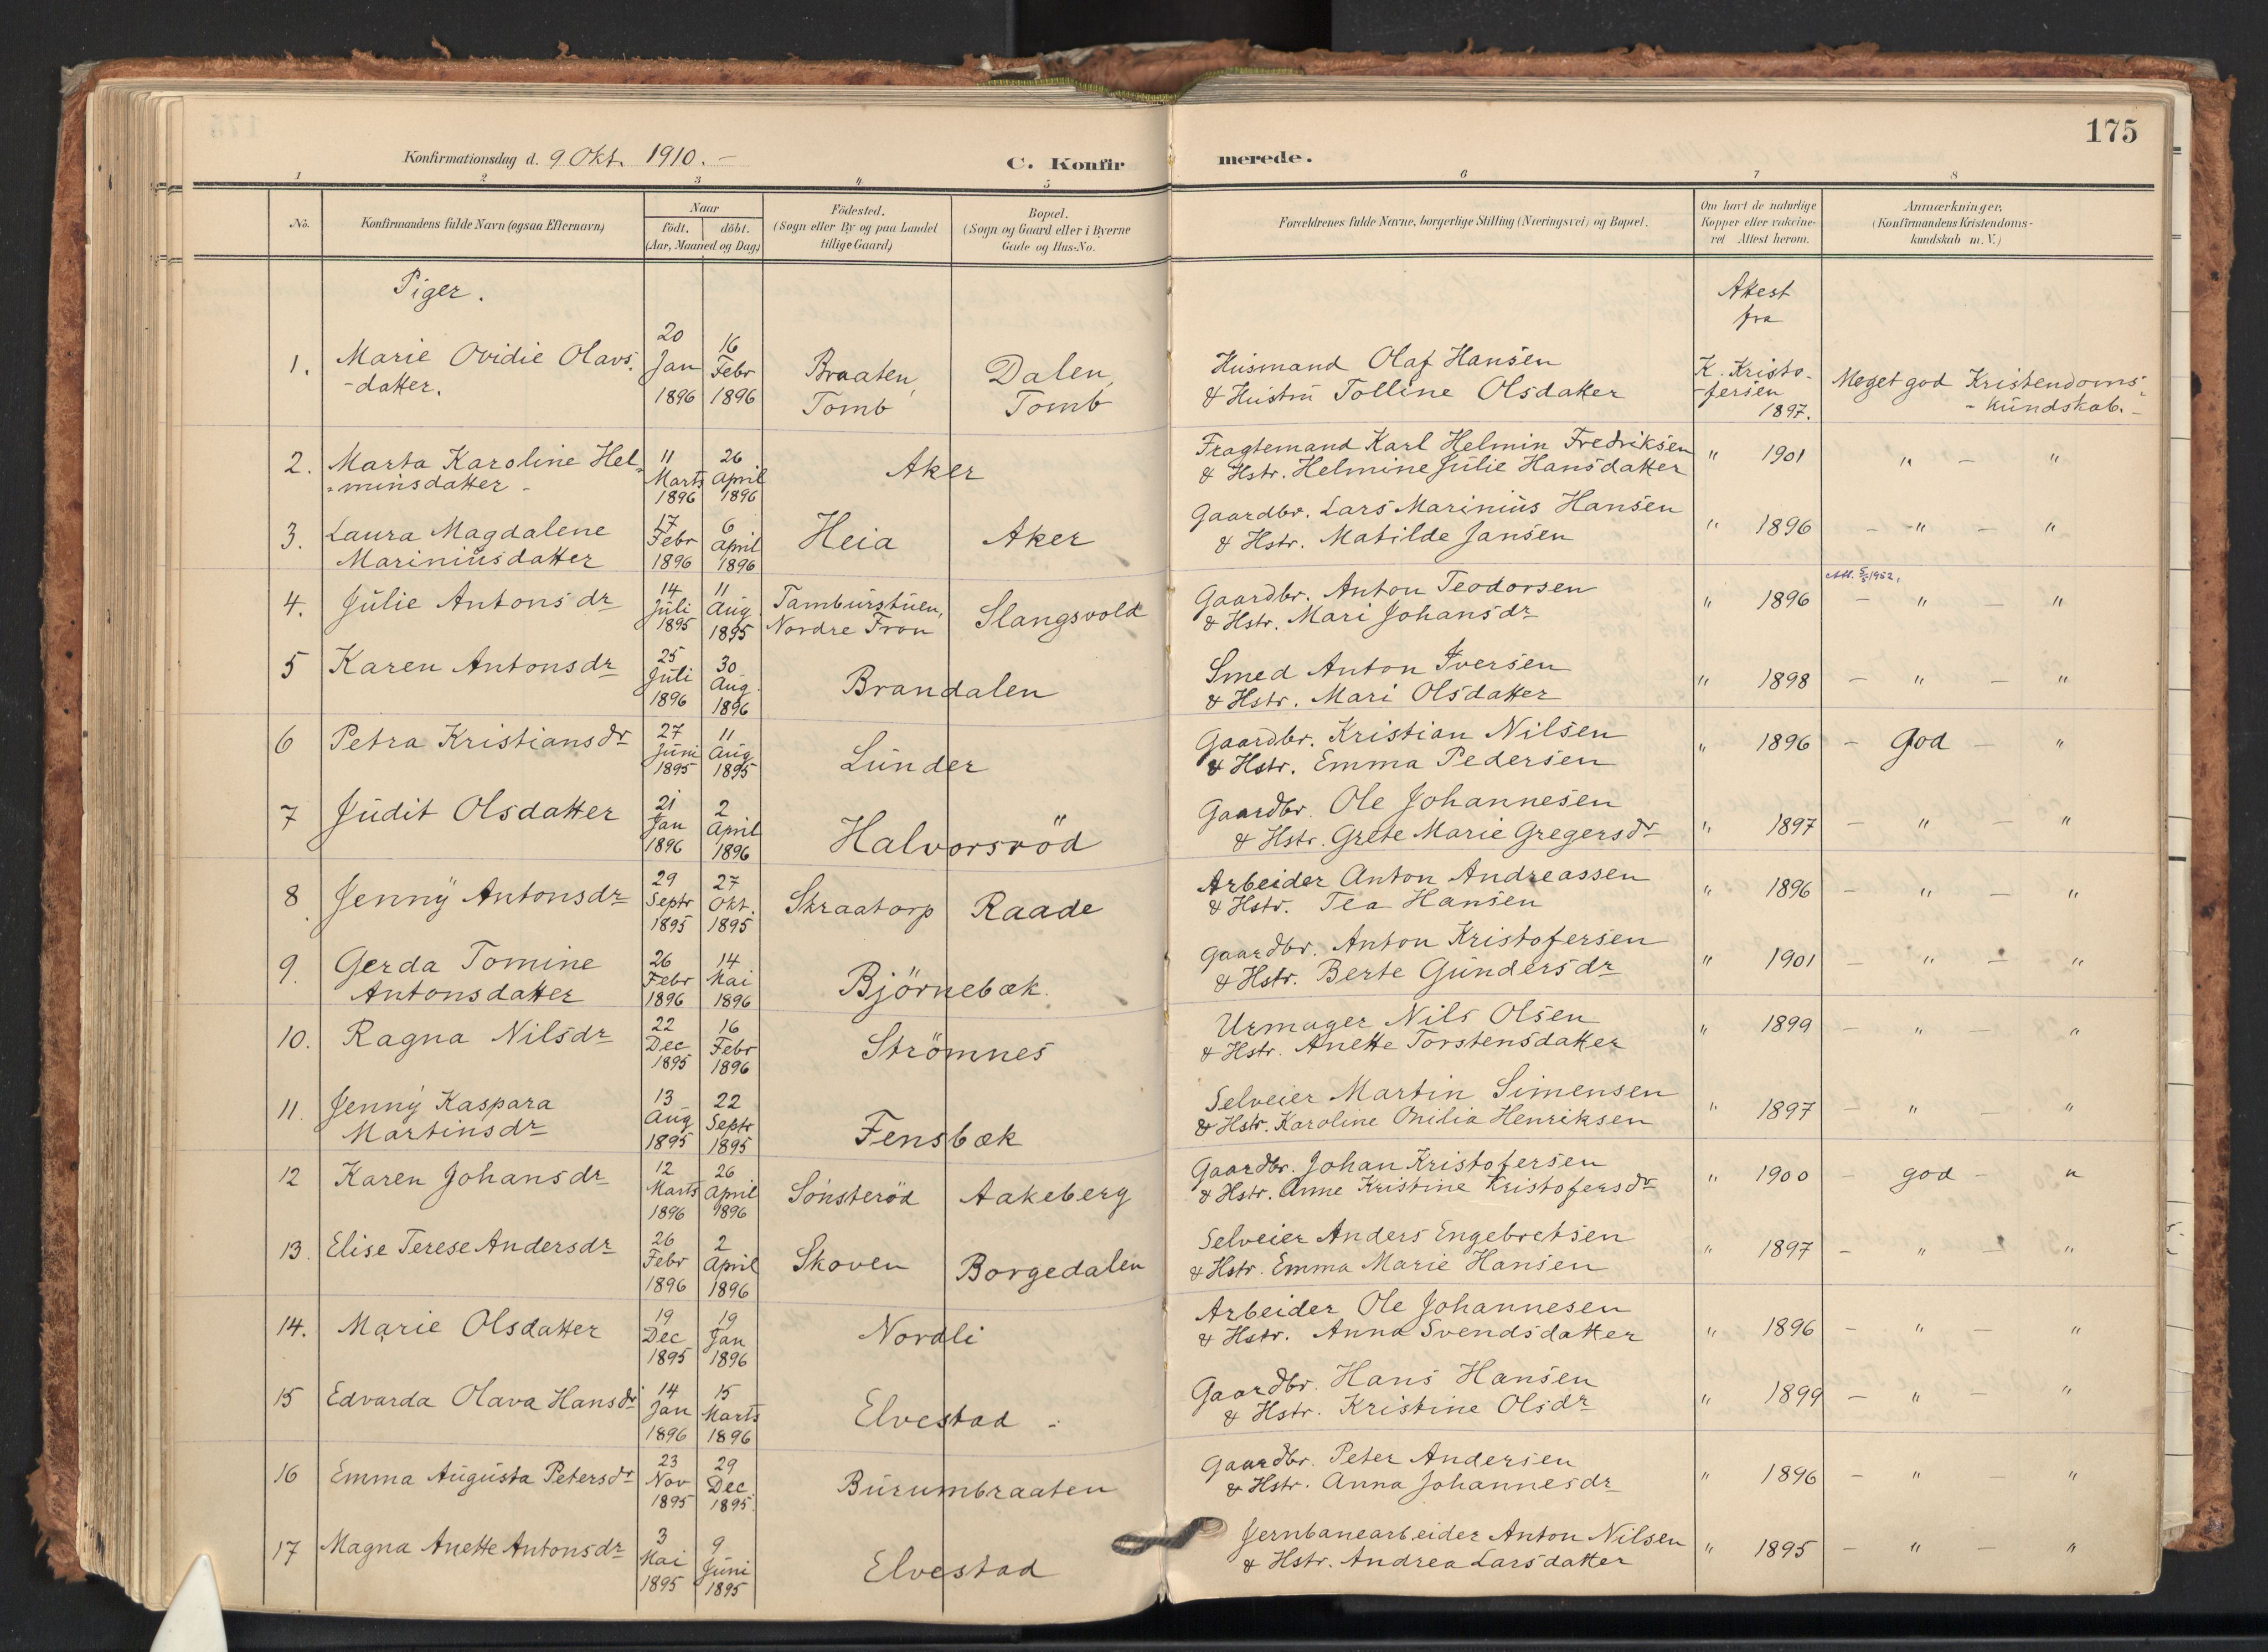 175
Konfirmationsdag d. 9 Okt. 1910. —
C. Konfirmerede.
1 2 3 4 5 6 7 8
No.
Konfirmandens fulde Navn (ogsaa Efternavn)
Naar
født. døbt.
(Aar, Maaned og Dag)
Fødested.
(Sogn eller By og paa Landet
tillige Gaard)
Bopæl.
(Sogn og Gaard eller i Byerne
Gade og Hus-No.
Forældrenes fulde Navne, borgerlige Stilling (Næringsvei) og Bopæl.
Om havt de naturlige
Kopper eller vakcine-
ret Attest herom.
Anmærkninger.
(Konfirmandens Kristendoms-
kundskab m. V.)
Piger.
Attest
fra
1. Marie Ovidie Olavs-
-datter.
20 Jan 1896
16 Febr 1896
Braaten,
Tomb
Dalen,
Tomb
Husmand Olaf Hansen
& Hustru Tolline Olsdatter
K. Kristo-
-fersen
1897.
Meget god Kristendoms-
- kundskab. -
2. Marta Karoline Hel-
-minsdatter -
11 Marts 1896
26 April 1896
Aker
Fragtemand Karl Helmin Fredriksen
& Hstr. Helmine Julie Hansdatter
" 1901
" — "
3. Laura Magdalene
Mariniusdatter
17 Febr 1896
6 April 1896
Heia
Aker
Gaardbr. Lars Marinius Hansen
& Hstr. Matilde Jansen
" 1896
— " — "
4. Julie Antonsdr
14 Juli 1895
11 Aug 1895
Tamburstuen,
Nordre Fron
Slangsvold
Gaardbr. Anton Teodorsen
& Hstr. Mari Johansdr
" 1896
Att. 5/5 1952.
— " — "
5 Karen Antonsdr
25 Juli 1896
30 Aug. 1896
Brandalen
Smed Anton Iversen
& Hstr. Mari Olsdatter
" 1898
— " — "
6 Petra Kristiansdr
27 Juni 1895
11 Aug 1895
Lunder
Gaardbr. Kristian Nilsen
& Hstr. Emma Pedersen
" 1896
— God — "
7 Judit Olsdatter
21 Jan 1896
2 April 1896
Halvorsröd
Gaardbr. Ole Johannesen
& Hstr. Grete Marie Gregersdr
" 1897
— " — "
8 Jenny Antonsdr
29 Septr 1895
27 Okt. 1895
Skraatorp
Raade
Arbeider Anton Andreassen
& Hstr. Tea Hansen
" 1896
— " — "
9. Gerda Tomine
Antonsdatter
26 Febr 1896
14 Mai 1896
Björnebæk.
Gaardbr. Anton Kristofersen
& Hstr. Berte Gundersdr
" 1901
— " — "
10. Ragna Nilsdr
22 Dec 1895
16 Febr 1896
Strömnes
Urmager Nils Olsen
& Hstr. Anette Torstensdatter
" 1899
— " — "
11. Jenny Kaspara
Martinsdr
13 Aug 1895
22 Septr 1895
Fensbæk
Selveier Martin Simensen
& Hstr. Karoline Onilia Henriksen
" 1897
— " — "
12 Karen Johansdr
12 Marts 1896
26 April 1896
Sönsteröd
Aakeberg
Gaardbr. Johan Kristofersen
& Hstr. Anne Kristine Kristofersdr
" 1900
— god — "
13. Elise Terese Andersdr
26 Febr 1896
2 April 1896
Skoven
Borgedalen
Selveier Anders Engebretsen
& Hstr. Emma Marie Hansen
" 1897
— " — "
14. Marie Olsdatter
19 Dec 1895
19 Jan 1896
Nordli
Arbeider Ole Johannesen
& Hstr. Anna Svendsdatter
" 1896
— " — "
15 Edvarda Olava Hansdr
14 Jan 1896
15 Marts 1896
Elvestad
Gaardbr. Hans Hansen
& Hstr. Kristine Olsdr
" 1899
— " — "
16 Emma Augusta Petersdr
23 Nov 1895
29 Dec 1895
Burumbraaten
Gaardbr. Peter Andersen
& Hstr. Anna Johannesdr
" 1896
— " "
17 Magna Anette Antonsdr
3 Mai 1895
9 Juni 1895
Elvestad
Jernbanearbeider Anton Nilsen
& Hstr. Andrea Larsdatter
" 1895
— " — "